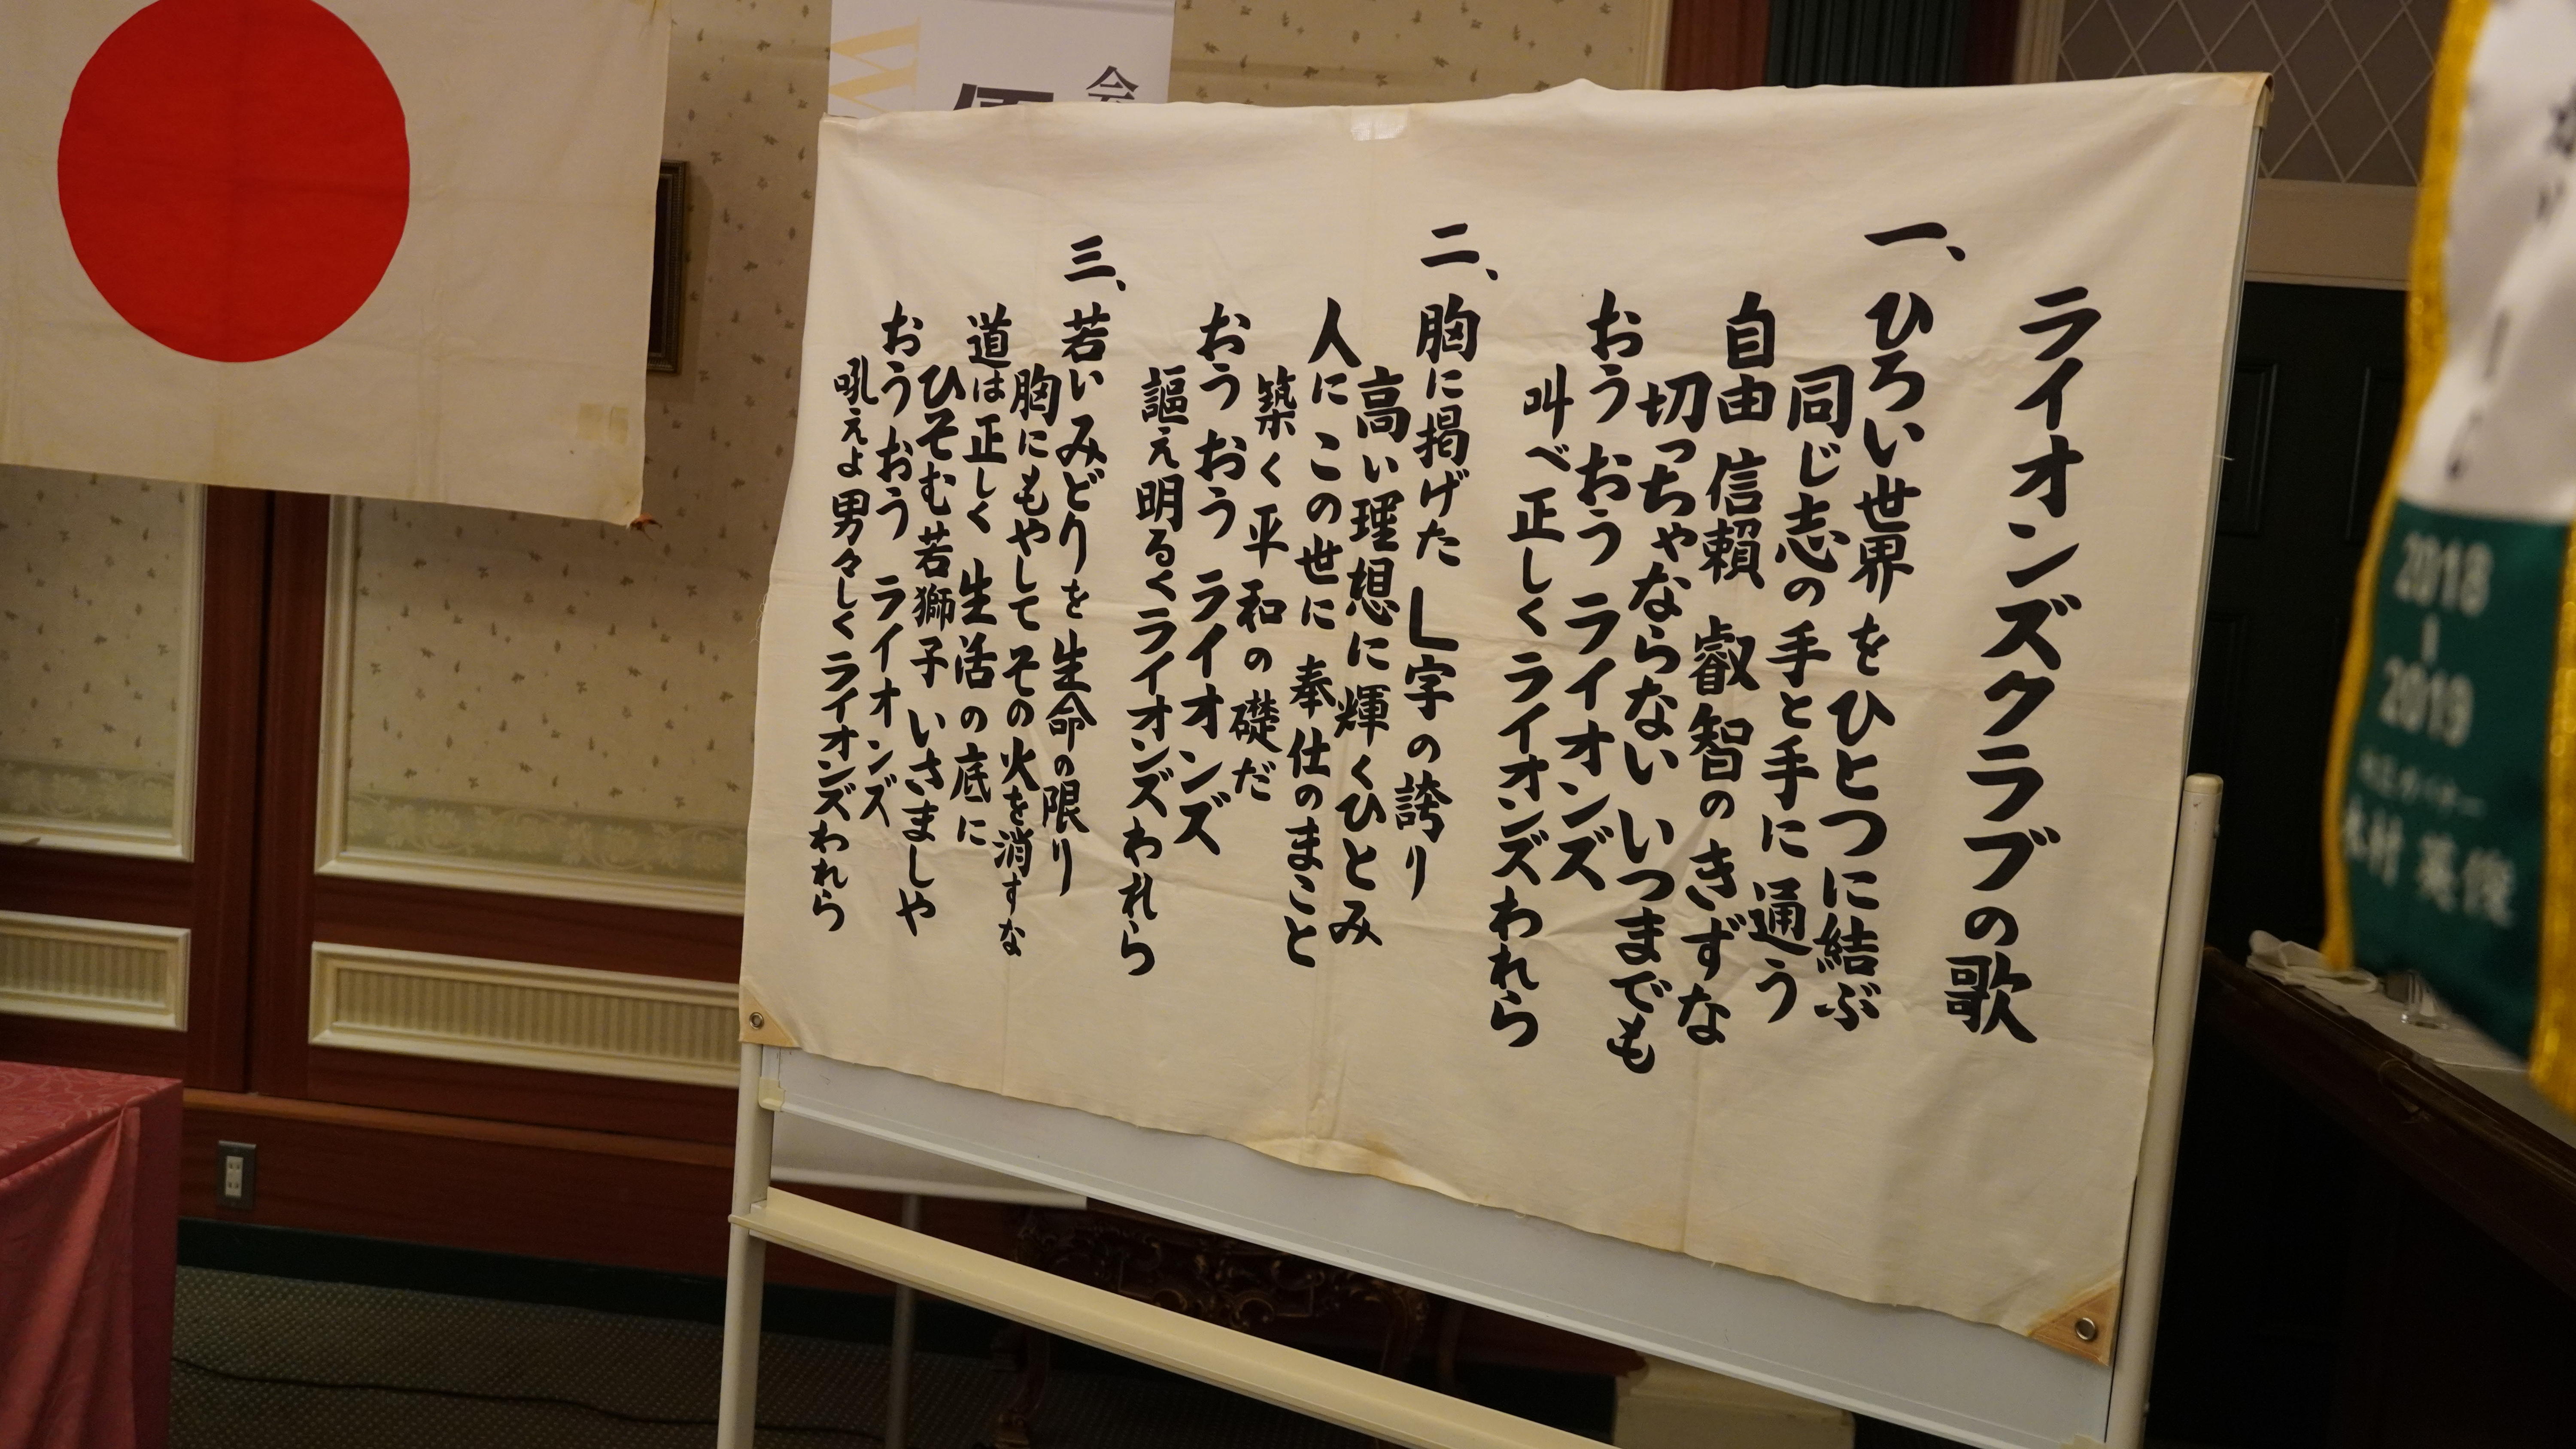 ライオンズクラブの歌
一、ひろい世界をひとつに結ぶ
同じ志の手と手に通う
自由 信頼 叡智のきずな
切っちゃならない いつまでも
おうおう ライオンズ
叫べ正しくライオンズわれら
二、胸に掲げた L字の誇り
高い理想に輝くひとみ
人にこの世に 奉仕のまこと
築く平和の礎だ
おうおう ライオンズ
謳え明るくライオンズわれら
三、若いみどりを生命の限り
胸にもやして その火を消すな
道は正しく 生活の底に
ひそむ若獅子 いさましや
おうおう ライオンズ
吼えよ男々しくライオンズわれら
会
W
2018
2019
木村 英俊